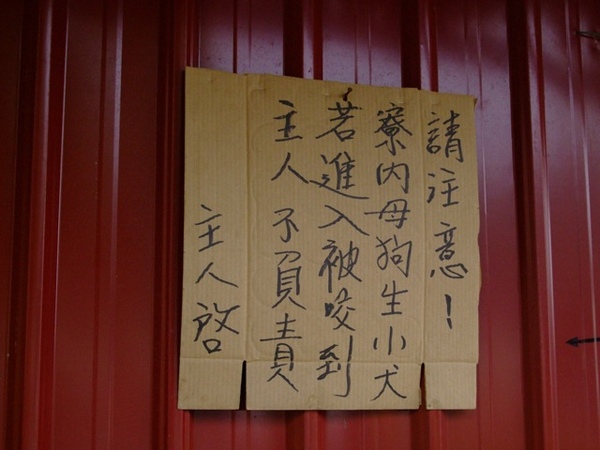 請注意!
寮內母狗生小犬
若進入被咬到
主人不負責
主人啓